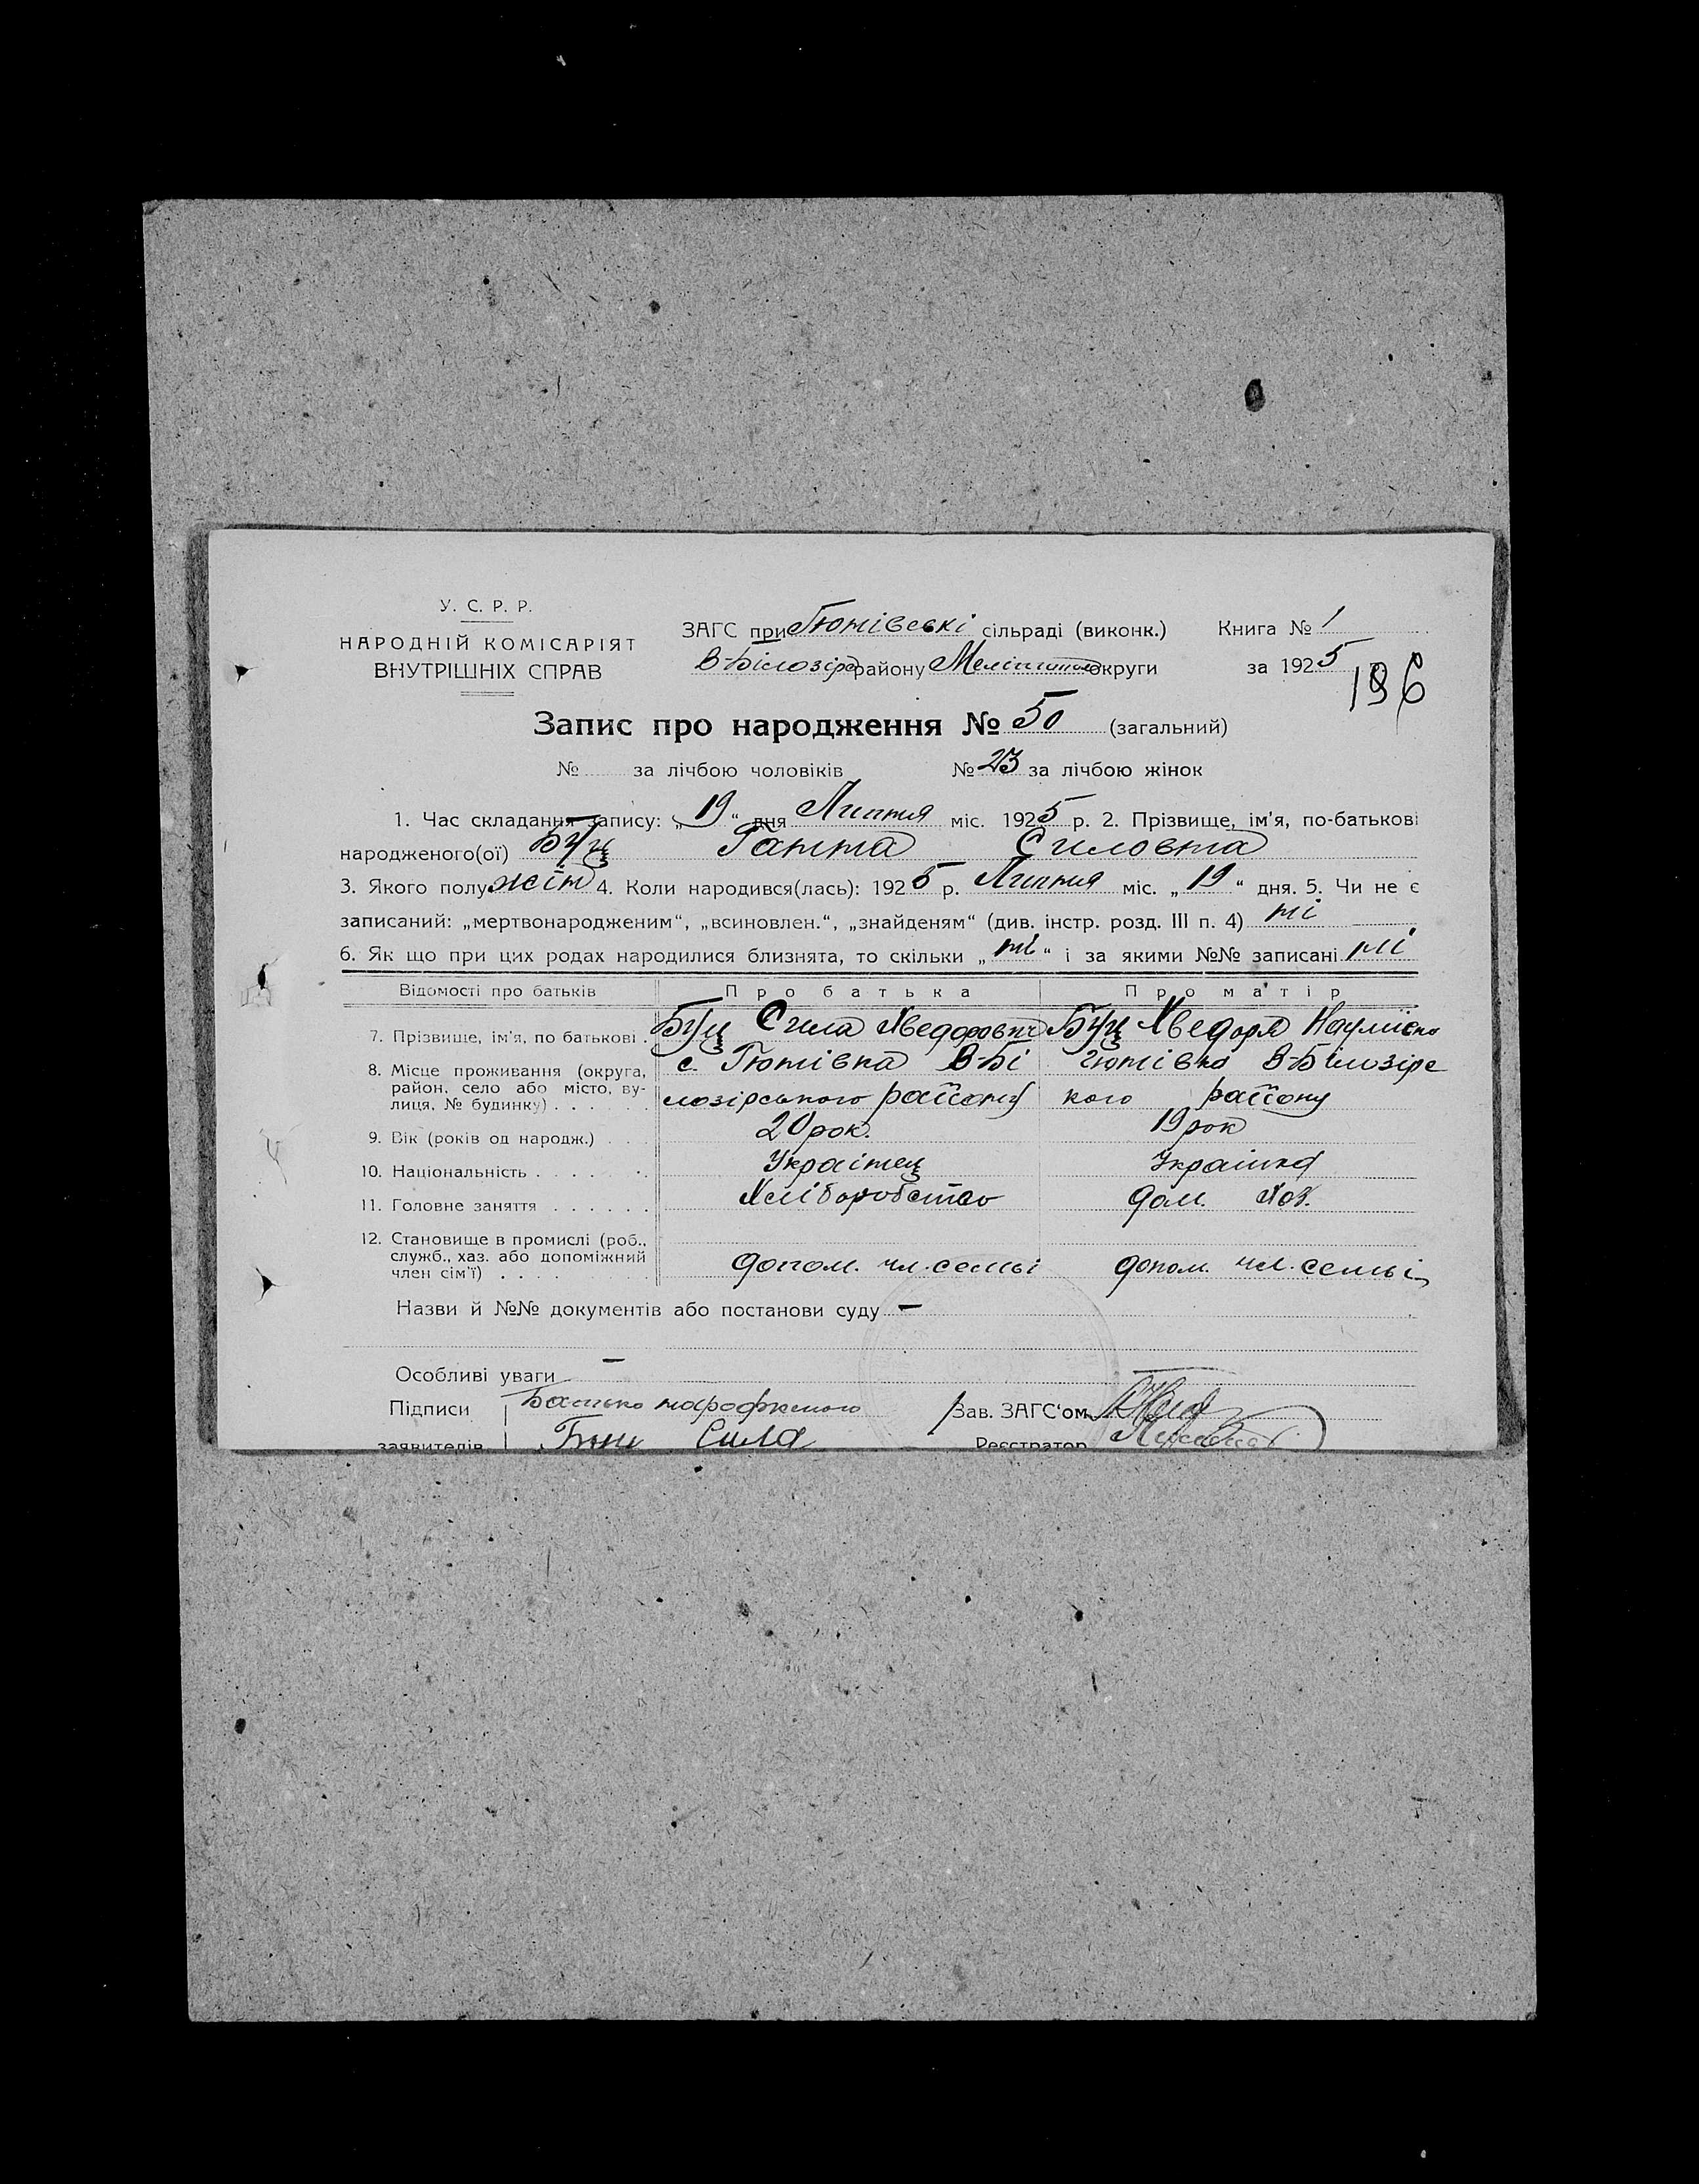 У. С. Р. Р.
НАРОДНІЙ КОМІСАРІЯТ
ВНУТРІШНІХ СПРАВ
ЗАГС при Гюнівські сільраді (виконк.) Книга № 1
В-Білозір району Меліт округи за 1925
196
Запис про народження № 50 (загальний)
№ за лічбою чоловіків № 23 за лічбою жінок
1. Час складання запису: „19“ дня Липня міс. 1925 р. 2. Прізвище, ім'я, по-батькові
народженого(ої) Буц Ганна Силовна
3. Якого полу жін 4. Коли народився(лась): 1925 р. Липня міс. „19“ дня. 5. Чи не є
записаний: „мертвонародженим“, „всиновлен.“, „знайденям“ (див. інстр. розд. III п. 4) ні
6. Як що при цих родах народилися близнята, то скільки „ні“ і за якими №№ записані ні
Відомості про батьків Про батька Про матір
7. Прізвище, ім'я, по батькові . Буц Сила Хведорович Буц Хведора Наумівна
8. Місце проживання (округа, район, село або місто, вулиця, № будинку) . . . . . с. Гюнівка В-Бі Гюнівка В-Білозірс
лозірського району кого району
9. Вік (років од народж.) . . . 20 рок. 19 рок
10. Національність . . . . . Українец Українка
11. Головне заняття . . . . . . Хліборобство дом. хоз.
12. Становище в промислі (роб., служб., хаз. або допоміжний член сім'ї) . . . . допом. чл. семьі допом. чл. семьі
Назви й №№ документів або постанови суду —
Особливі уваги —
Підписи Батько народженого Зав. ЗАГС'ом
заявителів Буц Сила Реєстратор